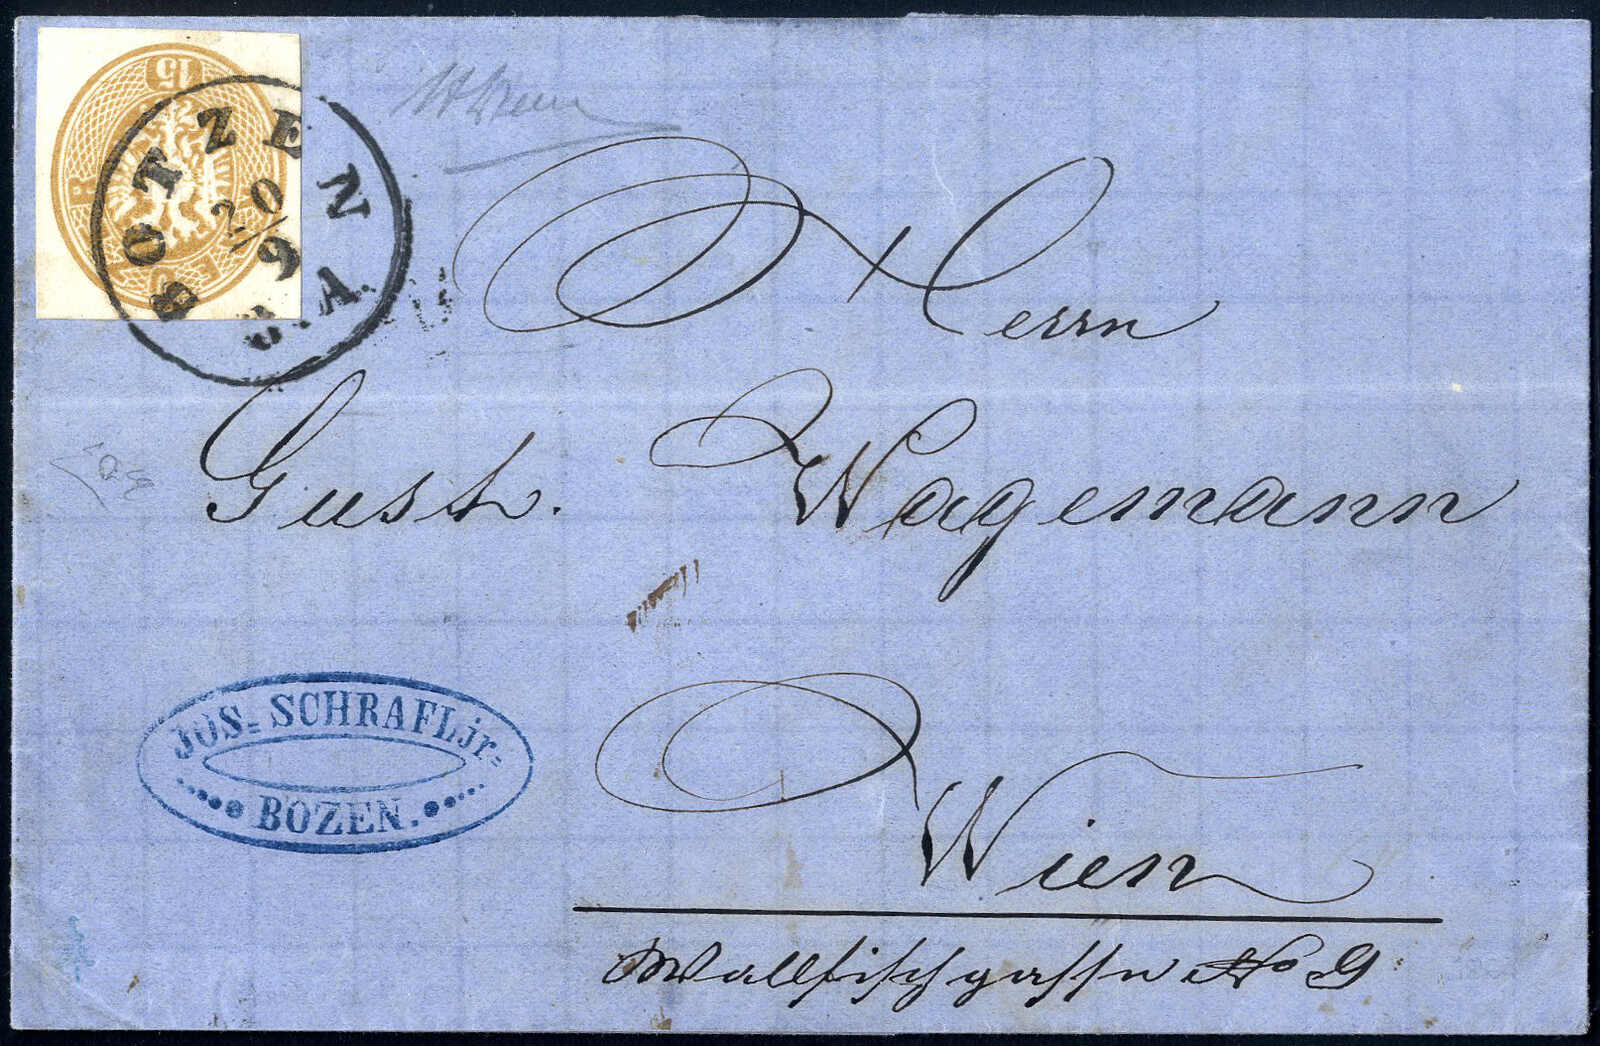 15
KREUZER
BOTZEN
20
9
S.A.
Herrn
Gust. Wagemann
JOS. SCHRAFL jr.
BOZEN.
Wien
Wallfischgasse No 9